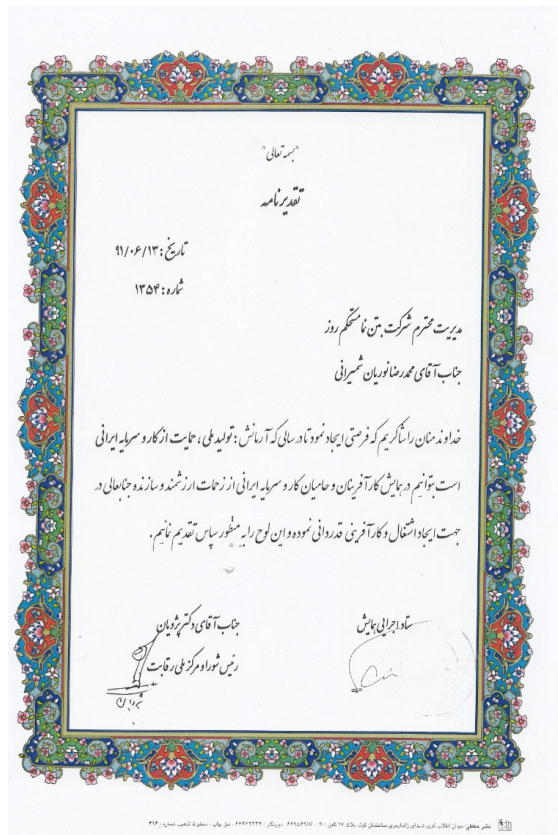 "بسمه تعالی"
تقدیرنامه
تاریخ: ۹۱/۰۶/۱۳
شماره: ۱۳۵۴
مدیریت محترم شرکت بتن نما مستحکم روز
جناب آقای محمدرضا نوریان شمیرانی
خداوند منان را شاکریم که فرصتی ایجاد نمود تا در سالی که آرمانش: تولید ملی، حمایت از کار و سرمایه ایرانی
است بتوانیم در همایش کارآفرینان و حامیان کار و سرمایه ایرانی از زحمات ارزشمند و سازنده جنابعالی در
جهت ایجاد اشتغال و کارآفرینی قدردانی نموده و این لوح را به منظور سپاس تقدیم نمائیم.
جناب آقای دکتر پژویان
رئیس شورا و مرکز ملی رقابت
ستاد اجرایی همایش
نشر حققی: میدان انقلاب کوی شهدای ژاندارمری ساختمان کوثر پلاک ۱۷ تلفن: ۲۰ - ۶۶۹۵۶۹۱۷ دورنگار: ۶۶۴۶۲۲۳۴ حق چاپ محفوظ تذهیب شماره: ۴۱۶